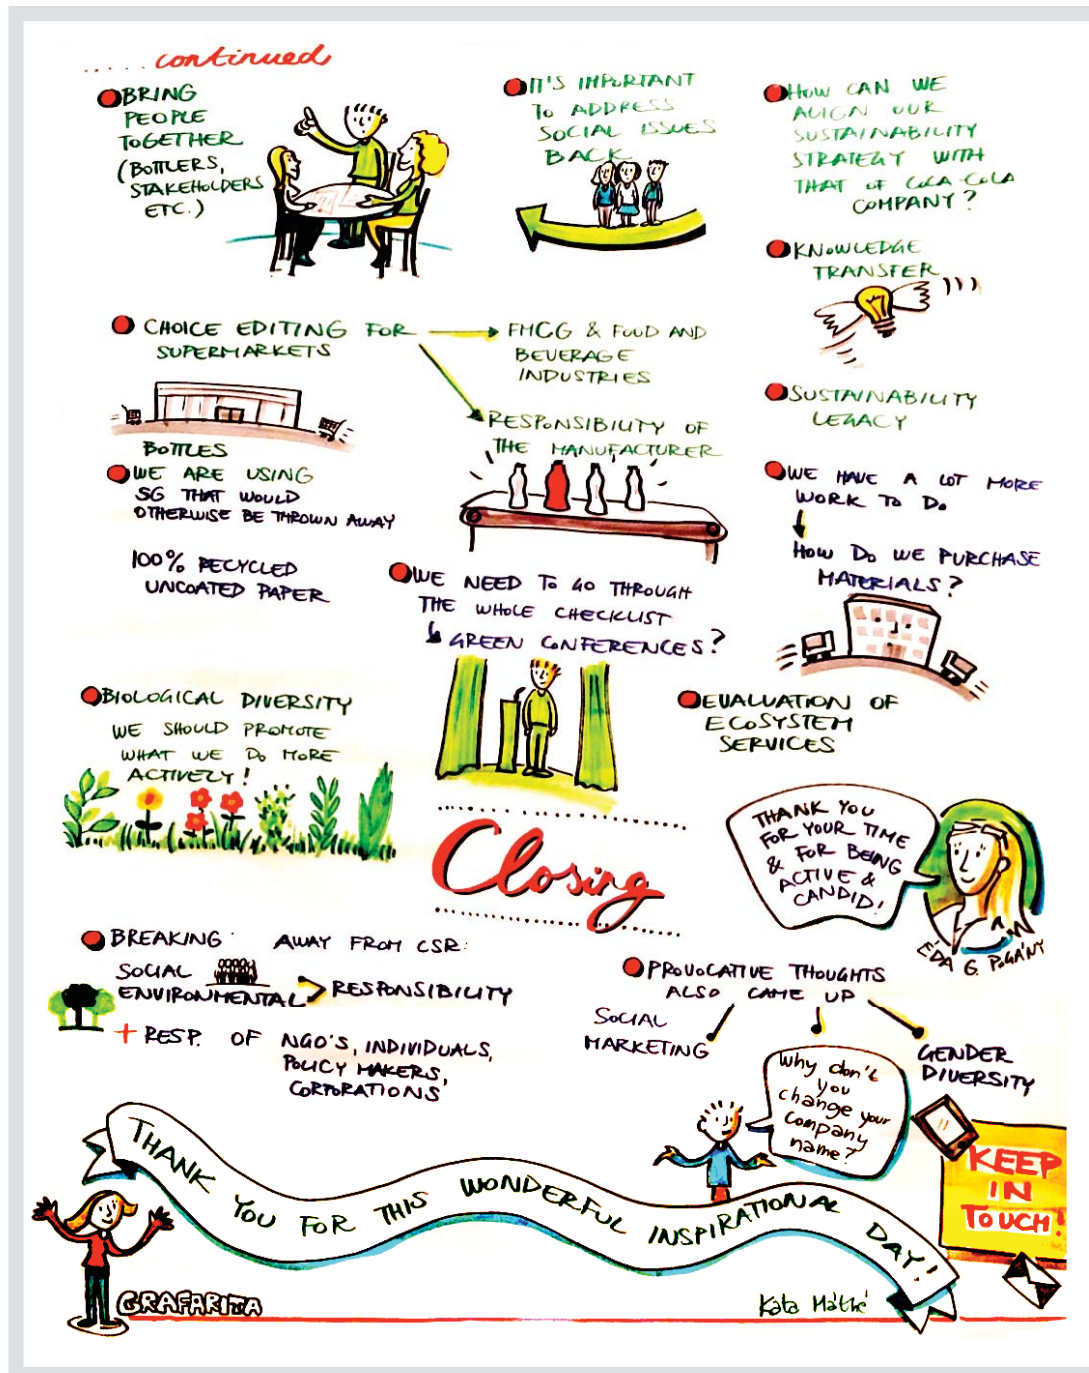 ..... continued
BRING
PEOPLE
TOGETHER
(BOTTLERS,
STAKEHOLDERS
ETC.)
IT'S IMPORTANT
TO ADDRESS
SOCIAL ISSUES
BACK
HOW CAN WE
ALIGN OUR
SUSTAINABILITY
STRATEGY WITH
THAT OF COCA-COLA
COMPANY?
KNOWLEDGE
TRANSFER
CHOICE EDITING FOR
SUPERMARKETS
FMCG & FOOD AND
BEVERAGE
INDUSTRIES
RESPONSIBILITY OF
THE MANUFACTURER
SUSTAINABILITY
LEGACY
BOTTLES
WE ARE USING
SG THAT WOULD
OTHERWISE BE THROWN AWAY
100% RECYCLED
UNCOATED PAPER
WE HAVE A LOT MORE
WORK TO DO
HOW DO WE PURCHASE
MATERIALS?
WE NEED TO GO THROUGH
THE WHOLE CHECKLIST
GREEN CONFERENCES?
BIOLOGICAL DIVERSITY
WE SHOULD PROMOTE
WHAT WE DO MORE
ACTIVELY!
EVALUATION OF
ECOSYSTEM
SERVICES
Closing
THANK YOU
FOR YOUR TIME
& FOR BEING
ACTIVE &
CANDID!
ÉDA G. POGÁNY
BREAKING AWAY FROM CSR:
SOCIAL
ENVIRONMENTAL > RESPONSIBILITY
+ RESP. OF NGO'S, INDIVIDUALS,
POLICY MAKERS,
CORPORATIONS
PROVOCATIVE THOUGHTS
ALSO CAME UP
SOCIAL
MARKETING
Why don't
you
change your
company
name?
GENDER
DIVERSITY
KEEP
IN
TOUCH!
THANK YOU FOR THIS WONDERFUL INSPIRATIONAL DAY!
GRAFARITA
Kata Máthé